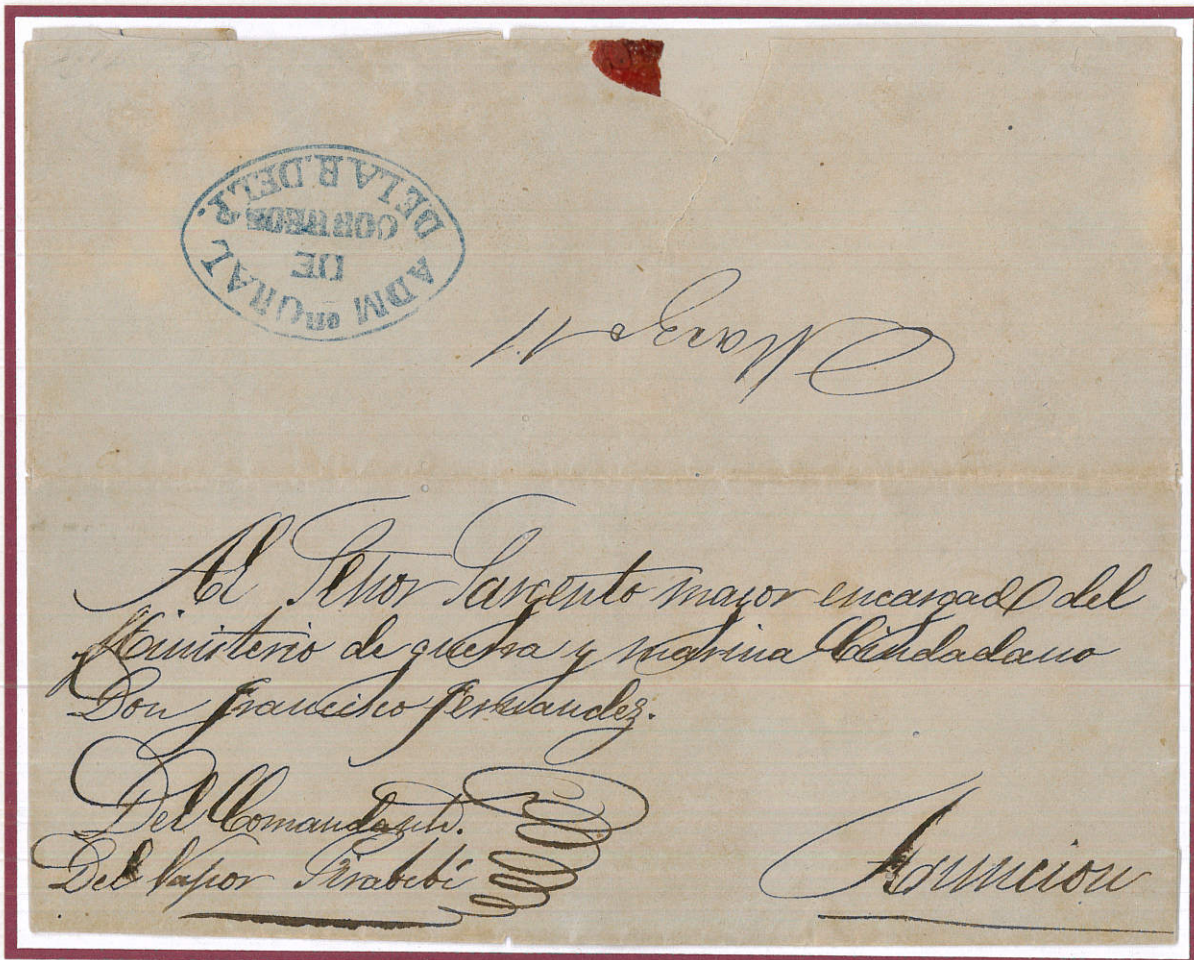 ADM on GRAL
DE
CORREOS
DE LA R. DEL P.
Marzo 11
Al Señor Sargento mayor encargado del
Ministerio de guerra y marina Ciudadano
Don Francisco Fernandez.
Del Comandante.
Del Vapor Pirabebé
Asuncion